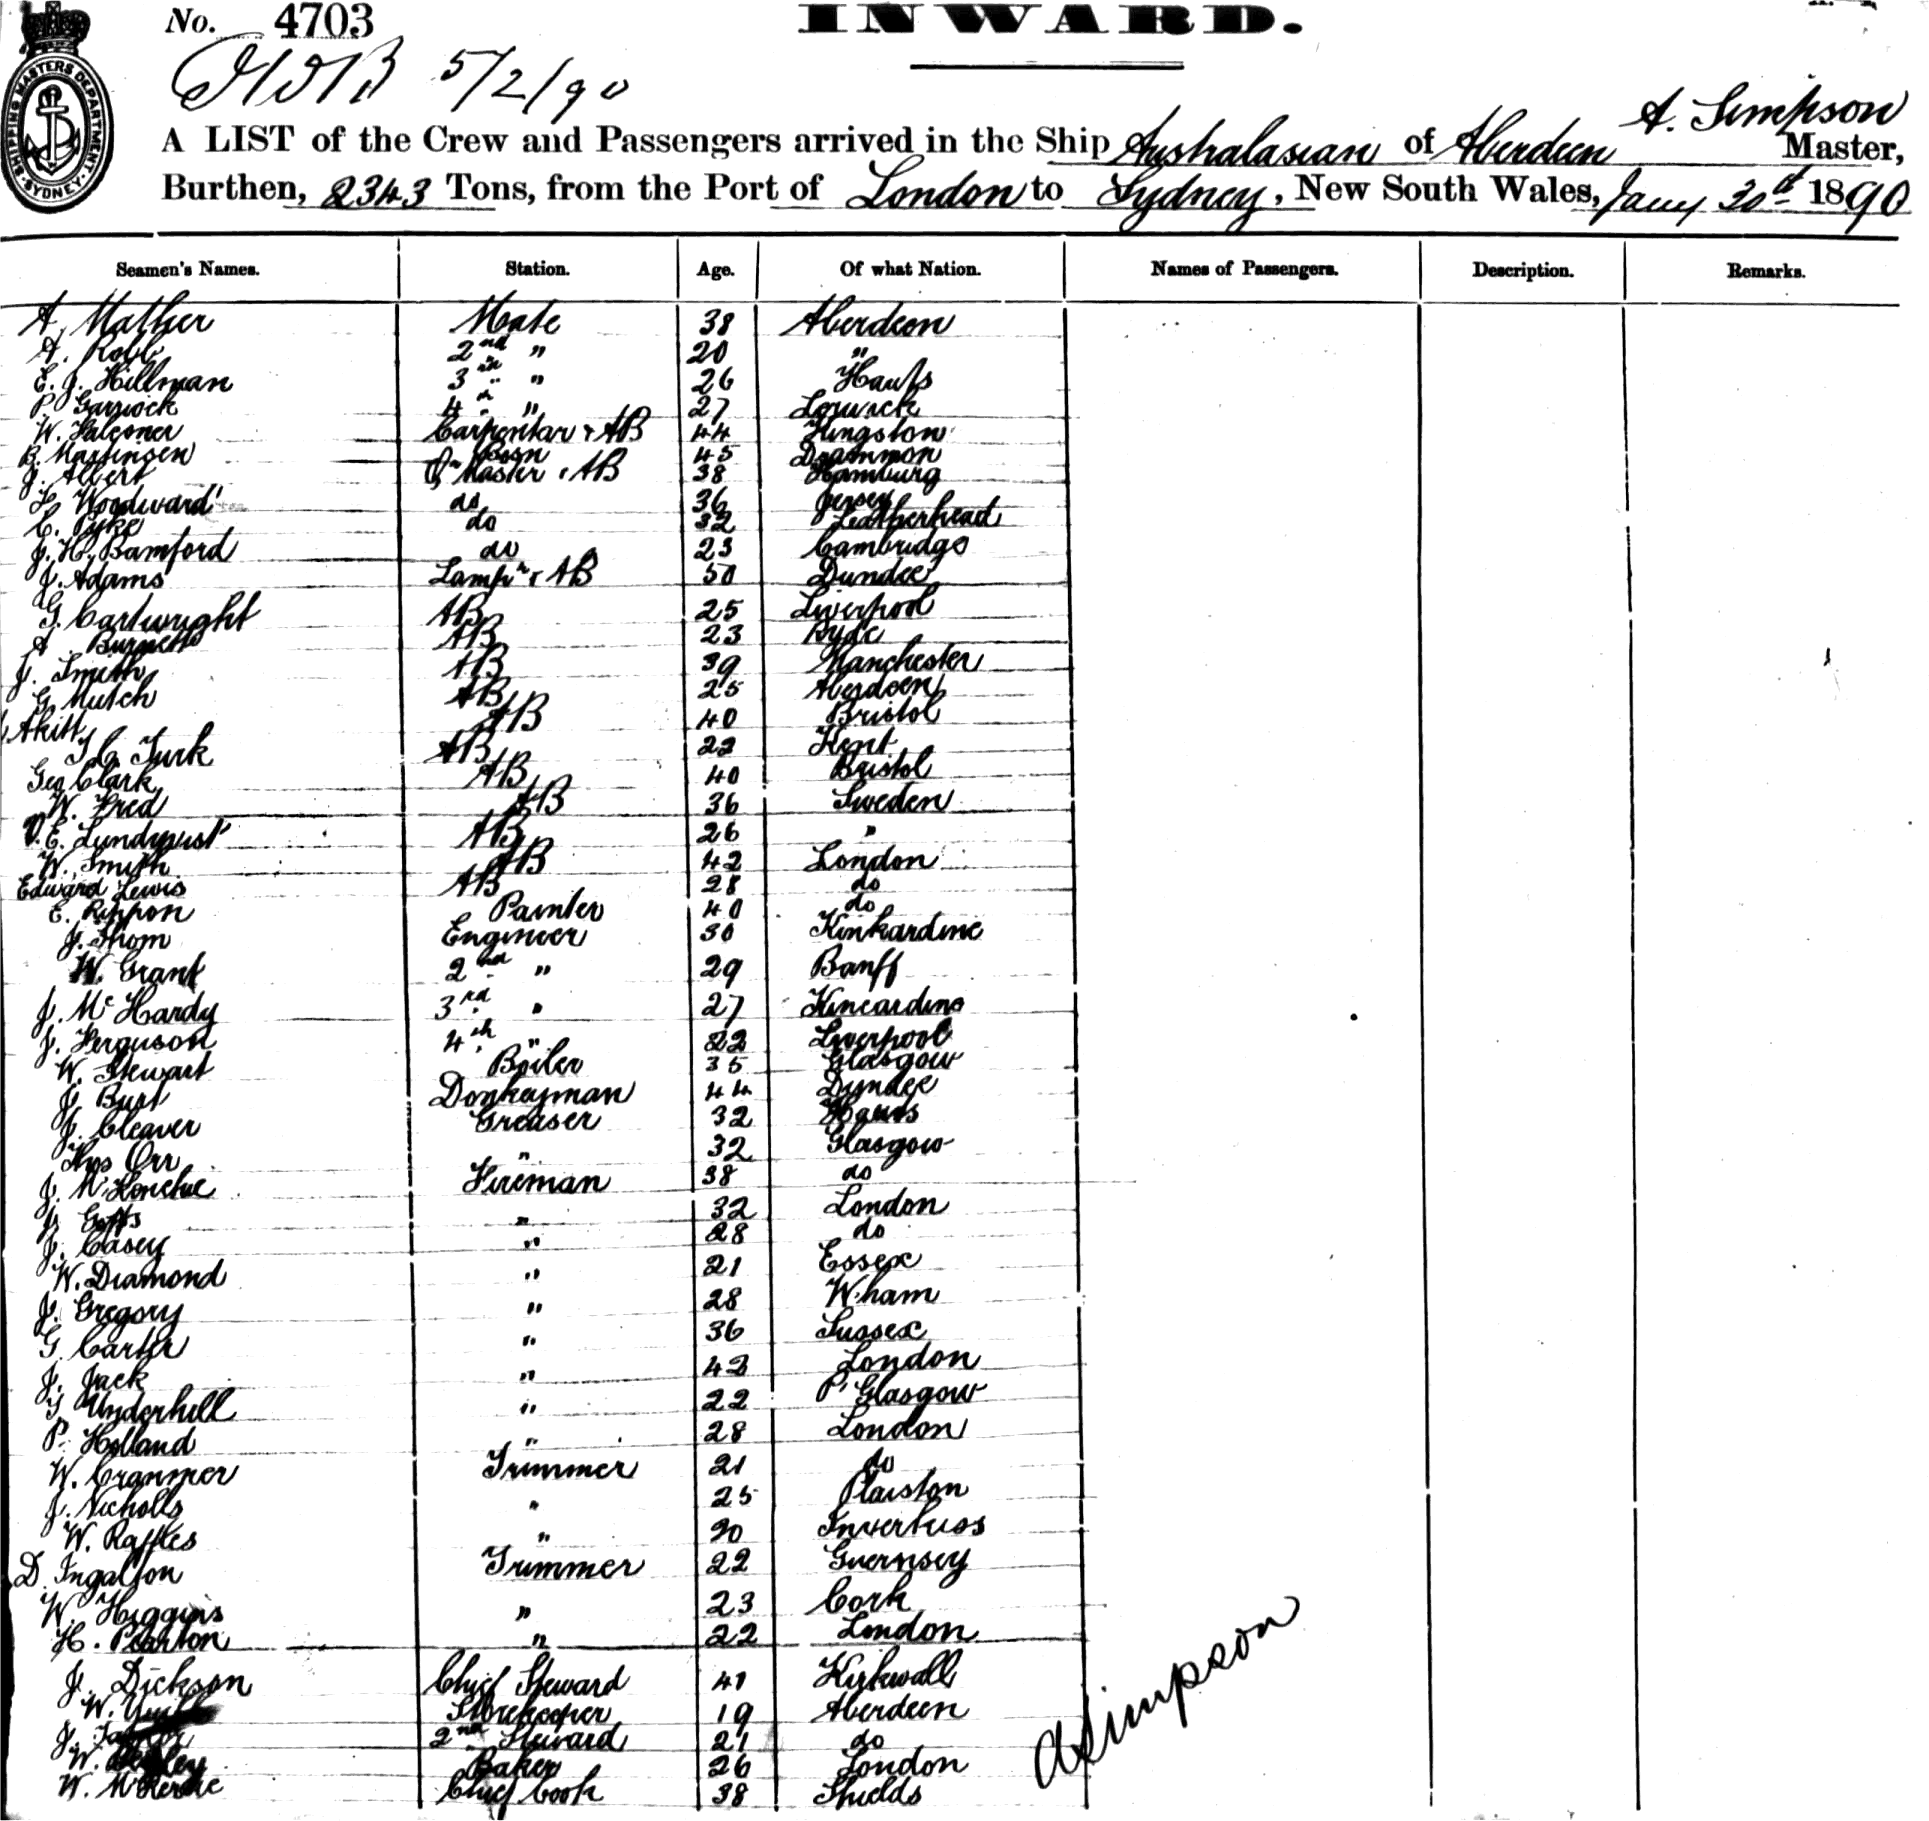 No. 4703 INWARD.
SHIPPING MASTERS DEPARTMENT. SYDNEY.
5/2/90
A. Simpson
A LIST of the Crew and Passengers arrived in the Ship Australasian of Aberdeen Master,
Burthen, 2343 Tons, from the Port of London to Sydney, New South Wales, Jany 30th 1890
Seamen's Names. Station. Age. Of what Nation. Names of Passengers. Description. Remarks.
A. Mather Mate 38 Aberdeen
A. Robb 2nd " 20 "
E. J. Hillman 3rd " 26 Hants
P. Garriock 4th " 27 Lerwick
W. Falconer Carpenter & AB 44 Kingston
B. Martinsen Bosn 45 Drammon
J. Albert Qr Master & AB 38 Hamburg
F. Woodward do 36 Jersey
C. Pyke do 32 Leatherhead
J. H. Bamford do 23 Cambridge
J. Adams Lampr & AB 50 Dundee
G. Cartwright AB 25 Liverpool
A. Burnett AB 23 Ryde
J. Smith AB 39 Manchester
G. Mutch AB 25 Aberdeen
Akitt AB 40 Bristol
T C Turk AB 22 Kent
Geo Clark AB 40 Bristol
W. Fred AB 36 Sweden
V. E. Lundqvist AB 26 "
W. Smith AB 42 London
Edward Lewis AB 28 do
E. Rippon Painter 40 do
J. Thom Engineer 30 Kinkardine
W. Grant 2nd " 29 Banff
J. McHardy 3rd " 27 Kincardine
J. Ferguson 4th " 22 Liverpool
W. Stewart Boiler 35 Glasgow
J. Burt Donkeyman 44 Dundee
J. Cleaver Greaser 32 Hants
Thos Orr " 32 Glasgow
J. Fireman 38 do
J. " 32 London
J. Casey " 28 do
W. Diamond " 21 Essex
J. Gregory " 28 W. ham
G. Carter " 36 Sussex
J. Jack " 42 London
G Underhill " 22 P. Glasgow
P. Holland " 28 London
W. Cranmer Trimmer 21 do
J. Nicholls " 25 Plaiston
W. Raffles " 20 Inverness
D. Ingalton Trimmer 22 Guernsey
W. Higgins " 23 Cork
H. Pearton " 22 London
J. Dickson Chief Steward 41 Kirkwall
W. Storekeeper 19 Aberdeen
J. 2nd Steward 21 do
W. Baker 26 London
W. Chief Cook 38 Shields
A Simpson